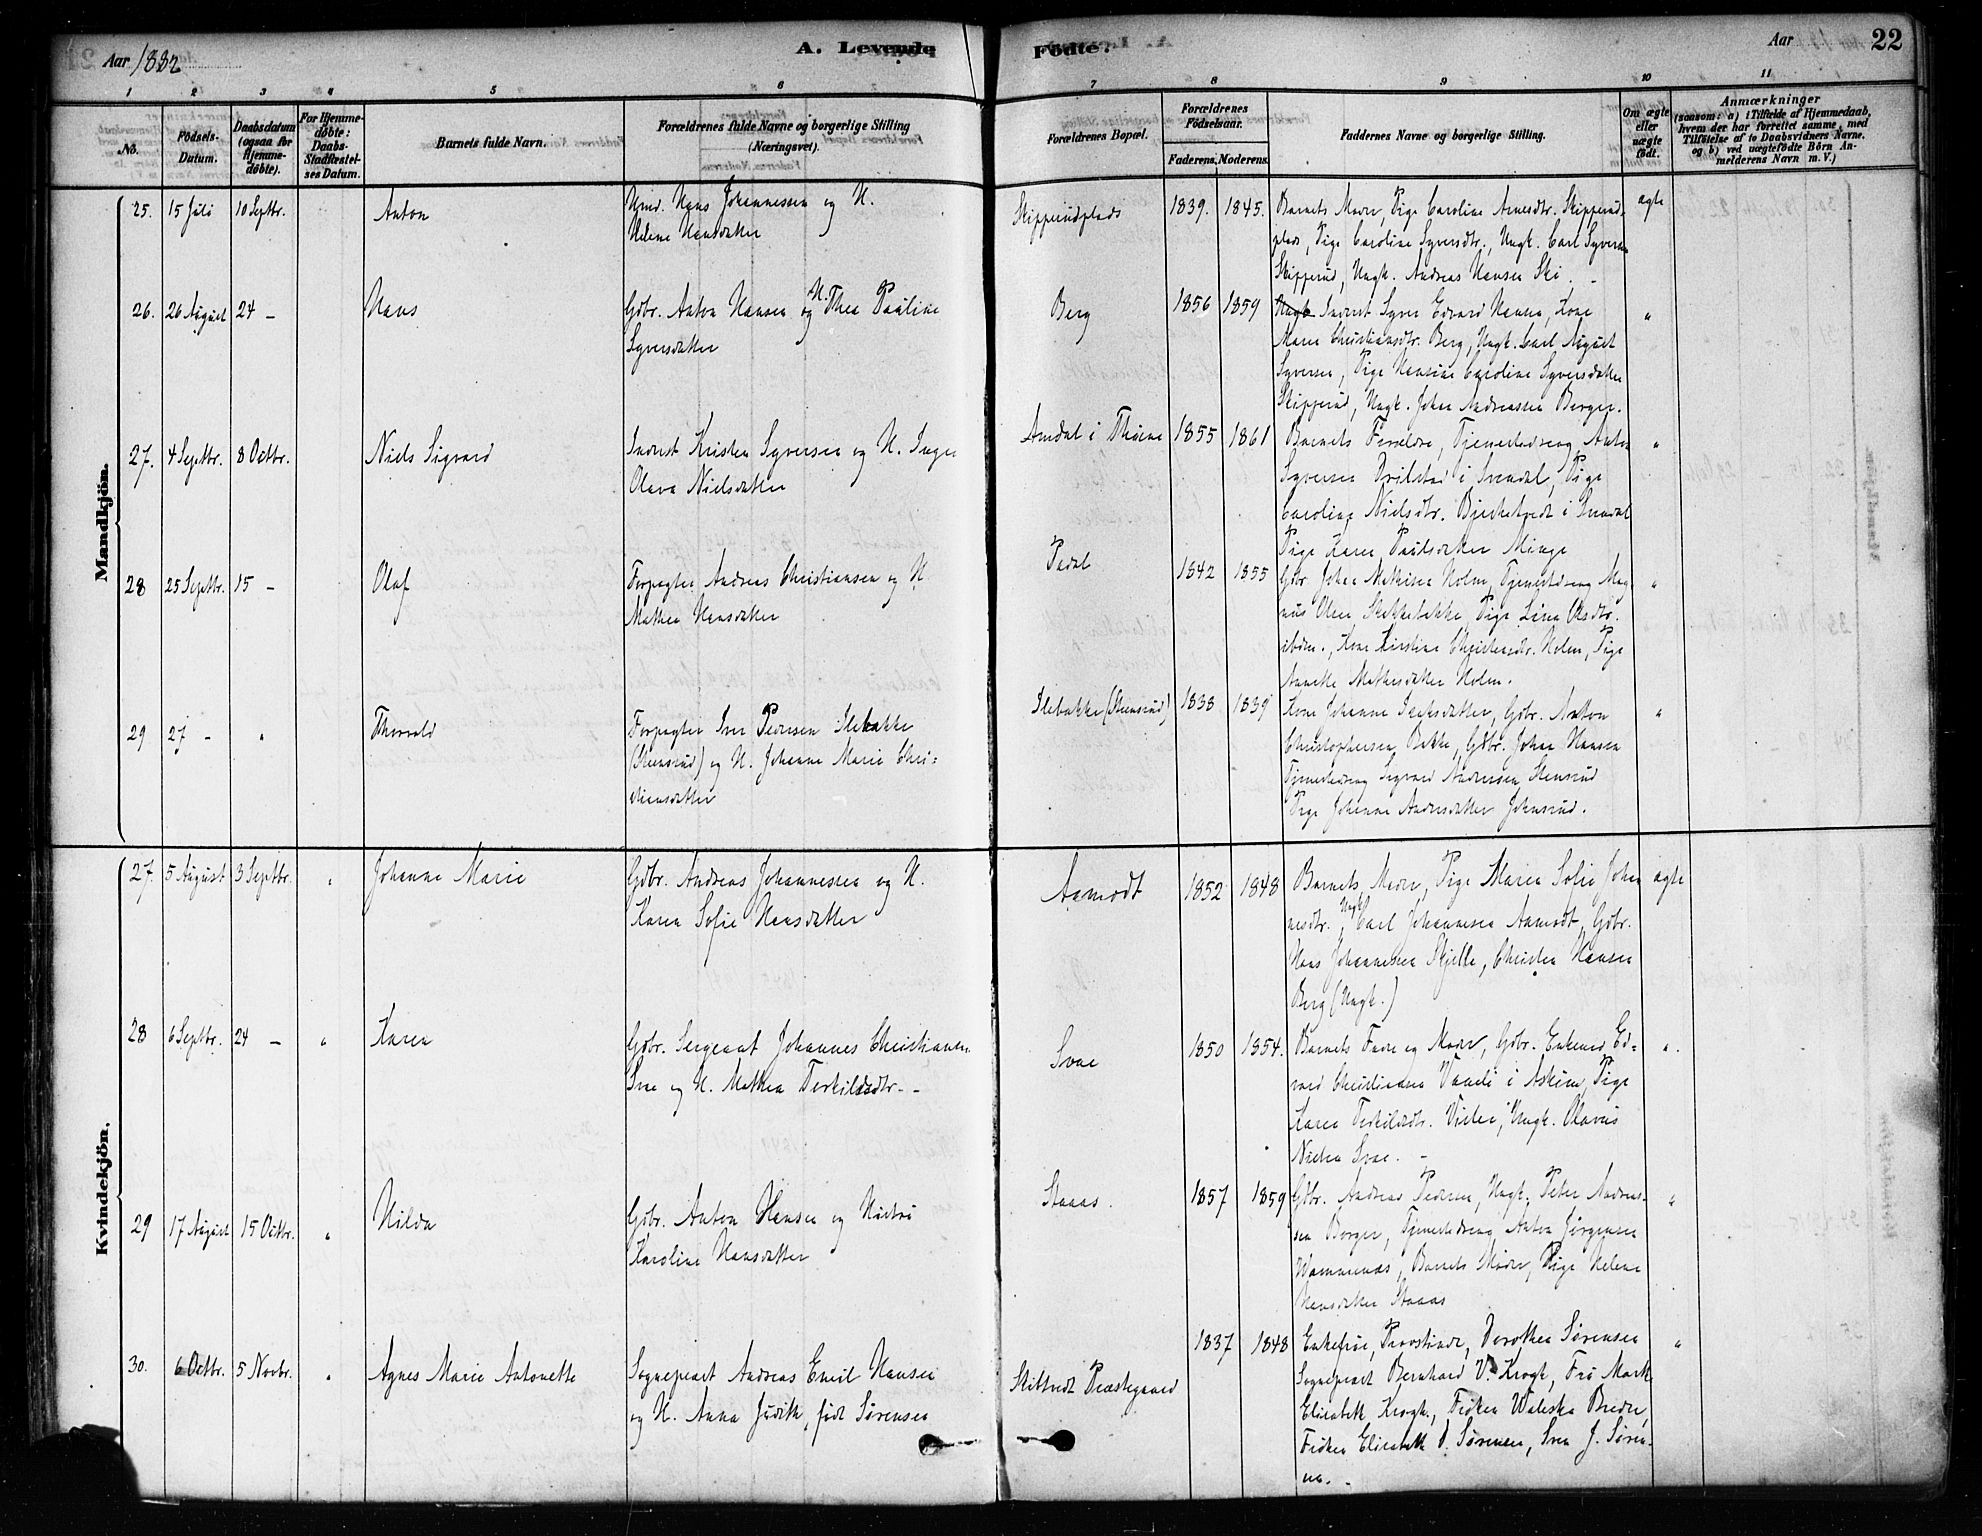 Aar 1882
A. Levende
Födte.
Aar
22
1 2 3 4 5 6 7 8 9 10 11
No.
Födsels-Datum.
Daabsdatum (ogsaa for Hjemme-döbte).
For Hjemme-döbte: Daabs-Stadfæstel-ses Datum.
Barnets fulde Navn.
Forældrenes fulde Navne og borgerlige Stilling
(Næringsvei).
Forældrenes Bopæl.
Forældrenes Födselsaar.
Faderens. Moderens.
Faddernes Navne og borgerlige Stilling.
Om ægte eller uægte födt.
Anmærkninger
(saasom: a) i Tilfælde af Hjemmedaab, hvem der har forrettet samme, med Tilföielse af to Daabsvidners Navne, og b) ved uægtefödte Börn An-melderens Navn m. V.)
Mandkjön.
25. 15 Juli 10 Septbr. Anton
Hans Johannessen og H.
Helene Hansdatter
Skipperudplads 1839. 1845.
Barnets Moder, Pige Caroline Arnesdtr. Skipperud-
plads, Pige Caroline Syversdtr., Ungk. Carl Syversen
Skipperud, Ungk. Andreas Hansen Ski. -
ægte
26. 26 August 24 - Hans
Gdbr. Anton Hansen og H. Thea Pauline
Syversdatter
Berg 1856 1859
Inderst Syver Edvard Hansen, Kone
Maren Christiansdtr. Berg, Ungk. Carl August
Syversen, Pige Hansine Caroline Syversdatter
Skipperud, Ungk. Johan Andreassen Berger.
"
27. 4 Septbr. 8 Octbr. Niels Sigvard
Inderst Kristen Syversen og H. Inger
Olava Nielsdatter
1855 1861
Barnets Forældre, Tjenestedreng Anton
Syversen i Svendal, Pige
Caroline Nielsdtr. i Svendal
Pige Karen Paulsdatter Minge
"
28 25 Septbr. 15 - Olaf
Forpagter Andreas Christiansen og H.
Mathea Hansdatter
1842 1855
Gdbr. Johan Mathisen Holm, Tjenestedreng Mag-
nus Olsen Pige Lina Olsdtr.
ibdm., Kone Kirstine Christensdtr. Holm, Pige
Annette Mathisdatter Holm.
"
29 27 - " Thorvald
Forpagter Iver Pedersen Ilebakke
(Steensrud) og H. Johanne Marie Chri-
stiansdatter
Ilebakke (Steensrud) 1838 1839
Kone Johanne Gdbr. Anton
Christophersen Bakke, Gdbr. Johan Hansen
Tjenestedreng Sigvard Andersen Stensrud
Pige Johanne Andersdatter Johnsrud.
"
Kvindekjön.
27. 5 August 3 Septbr. " Johanne Marie
Gdbr. Andreas Johannessen og H.
Karen Sofie Hansdatter
Aamodt 1852 1848
Barnets Moder, Pige Maren Sofie Johan
nesdtr., Ungk. Carl Johannesen Aamodt, Gdbr.
Hans Johannessen Skjelle, Christen Hansen
Berg (Ungk.)
ægte
28 6 Septbr. 24 - " Karen
Gdbr. Sergeant Johannes Christiansen
Svae og H. Mathea Terkildsdtr. -
Svae 1850 1854.
Barnets Fader og Moder, Gdbr. Enkemd Ed-
vard Christiansen i Askim, Pige
Karen Terkildsdtr. Ungk. Olavus
Nielsen Svae. -
"
29 17 August 15 Octbr. " Hilda
Gdbr. Anton Hansen og Hustru
Karoline Hansdatter
Staaas. 1857 1859
Gdbr. Andreas Pedersen, Ungk. Peter Andreas-
sen Borger, Tjenestedreng Anton Jørgensen
Barnets Moder, Pige Helene
Hansdatter Staaas
"
30. 6 Octbr. 5 Novbr. " Agnes Marie Antonette
Sognepræst Andreas Emil Hansen
og H. Anna Judith, født Sørensen
Skiptvedt Præstegaard 1837 1848
Enkefrue, Provstinde, Dorothea Sørensen
Sognepræst Bernhard V. Krogh, Fru Marth
Elisabeth Krogh, Frøken Waleska Breder,
Frøken Elisabeth D. Sørensen, Sven J. Søren-
sen. -
"